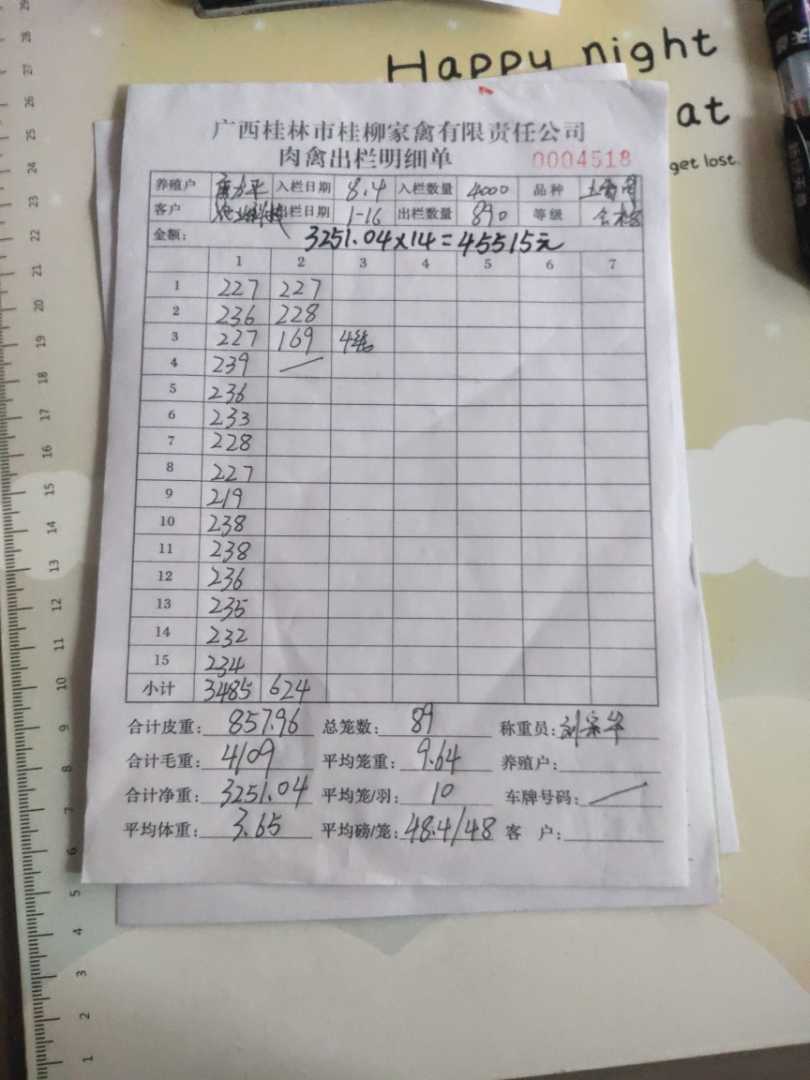 Happy night
at
get lost.
广西桂林市桂柳家禽有限责任公司
肉禽出栏明细单 0004518
养殖户 入栏日期 8.4 入栏数量 4000 品种
客户 出栏日期 1-16 出栏数量 890 等级 合格
金额: 3251.04×14=45515元
1 2 3 4 5 6 7
1 227 227
2 236 228
3 227 169 4笼
4 239 —
5 236
6 233
7 228
8 227
9 219
10 238
11 238
12 236
13 235
14 232
15 234
小计 3485 624
合计皮重: 857.96 总笼数: 89 称重员: 刘宗华
合计毛重: 4109 平均笼重: 9.64 养殖户:
合计净重: 3251.04 平均笼/羽: 10 车牌号码: —
平均体重: 3.65 平均磅/笼: 48.4/48 客 户:
29
28
27
26
25
24
23
22
21
20
19
18
17
16
15
14
13
12
11
10
9
8
7
6
5
4
3
2
1